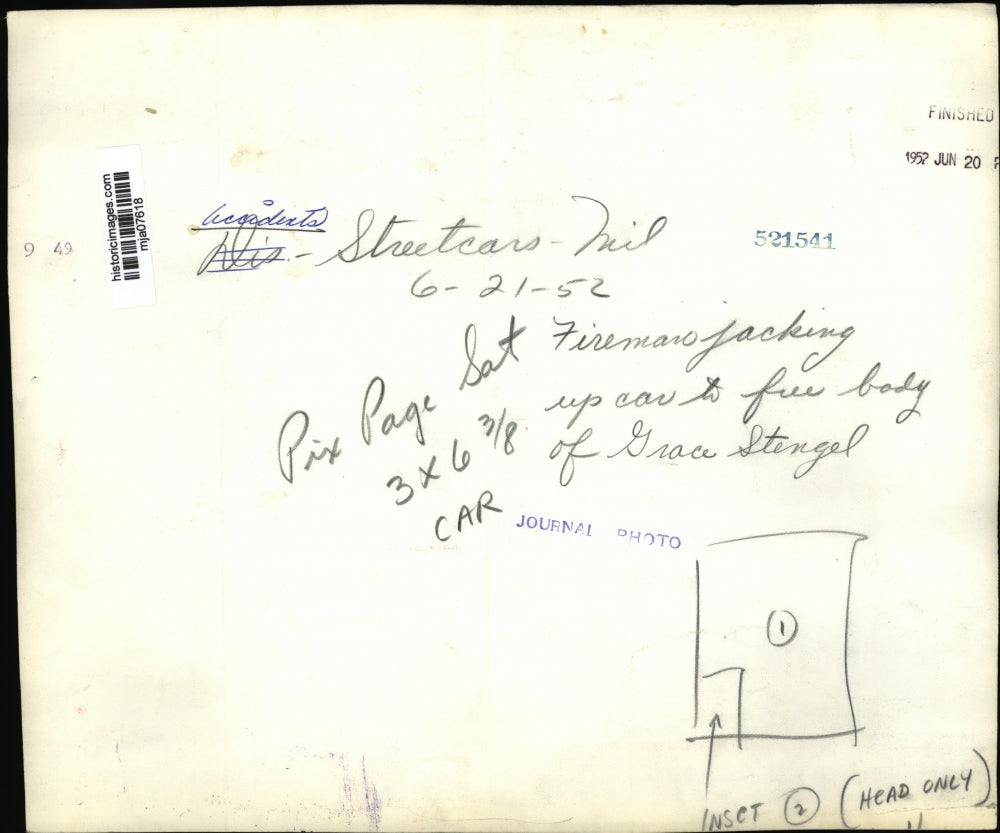 FINISHED
1952 JUN 20 P
historicimages.com
mja07618
9 49
Accidents
Dis. - Streetcars - Mil
521541
6-21-52
Pix Page Sat
3 x 6 3/8
CAR
Fireman jacking
up car to free body
of Grace Stengel
JOURNAL PHOTO
1
INSET 2 (HEAD ONLY)